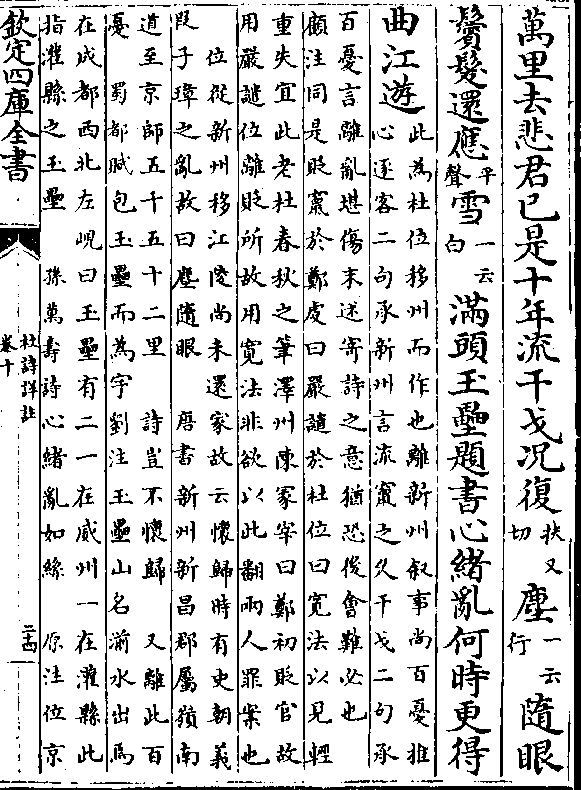 萬里去悲君已是十年流干戈况復扶又切塵一云行隨眼
鬢髮還應平聲雪一云白滿頭玉壘題書心緒亂何時更得
曲江遊
此為杜位移州而作也離新州叙事尚百憂推
心逐客二句承新州言流竄之久干戈二句承
百憂言離亂堪傷末述寄詩之意猶恐後會難必也
顧注同是貶竄於鄭虔曰嚴譴於杜位曰寬法以見輕
重失宜此老杜春秋之筆澤州陳冢宰曰鄭初貶官故
用嚴譴位離貶所故用寬法非欲以此翻兩人罪案也
位從新州移江陵尚未還家故云懷歸時有史朝義
段子璋之亂故曰塵隨眼 唐書新州新昌郡屬嶺南
道至京師五千五十二里 詩豈不懷歸 又離此百
憂 蜀都賦包玉壘而為宇劉注玉壘山名湔水出焉
在成都西北左峴曰玉壘有二一在威州一在灌縣此
指灌縣之玉壘 孫萬壽詩心緒亂如絲 原注位京
欽定四庫全書
杜詩詳註
卷十